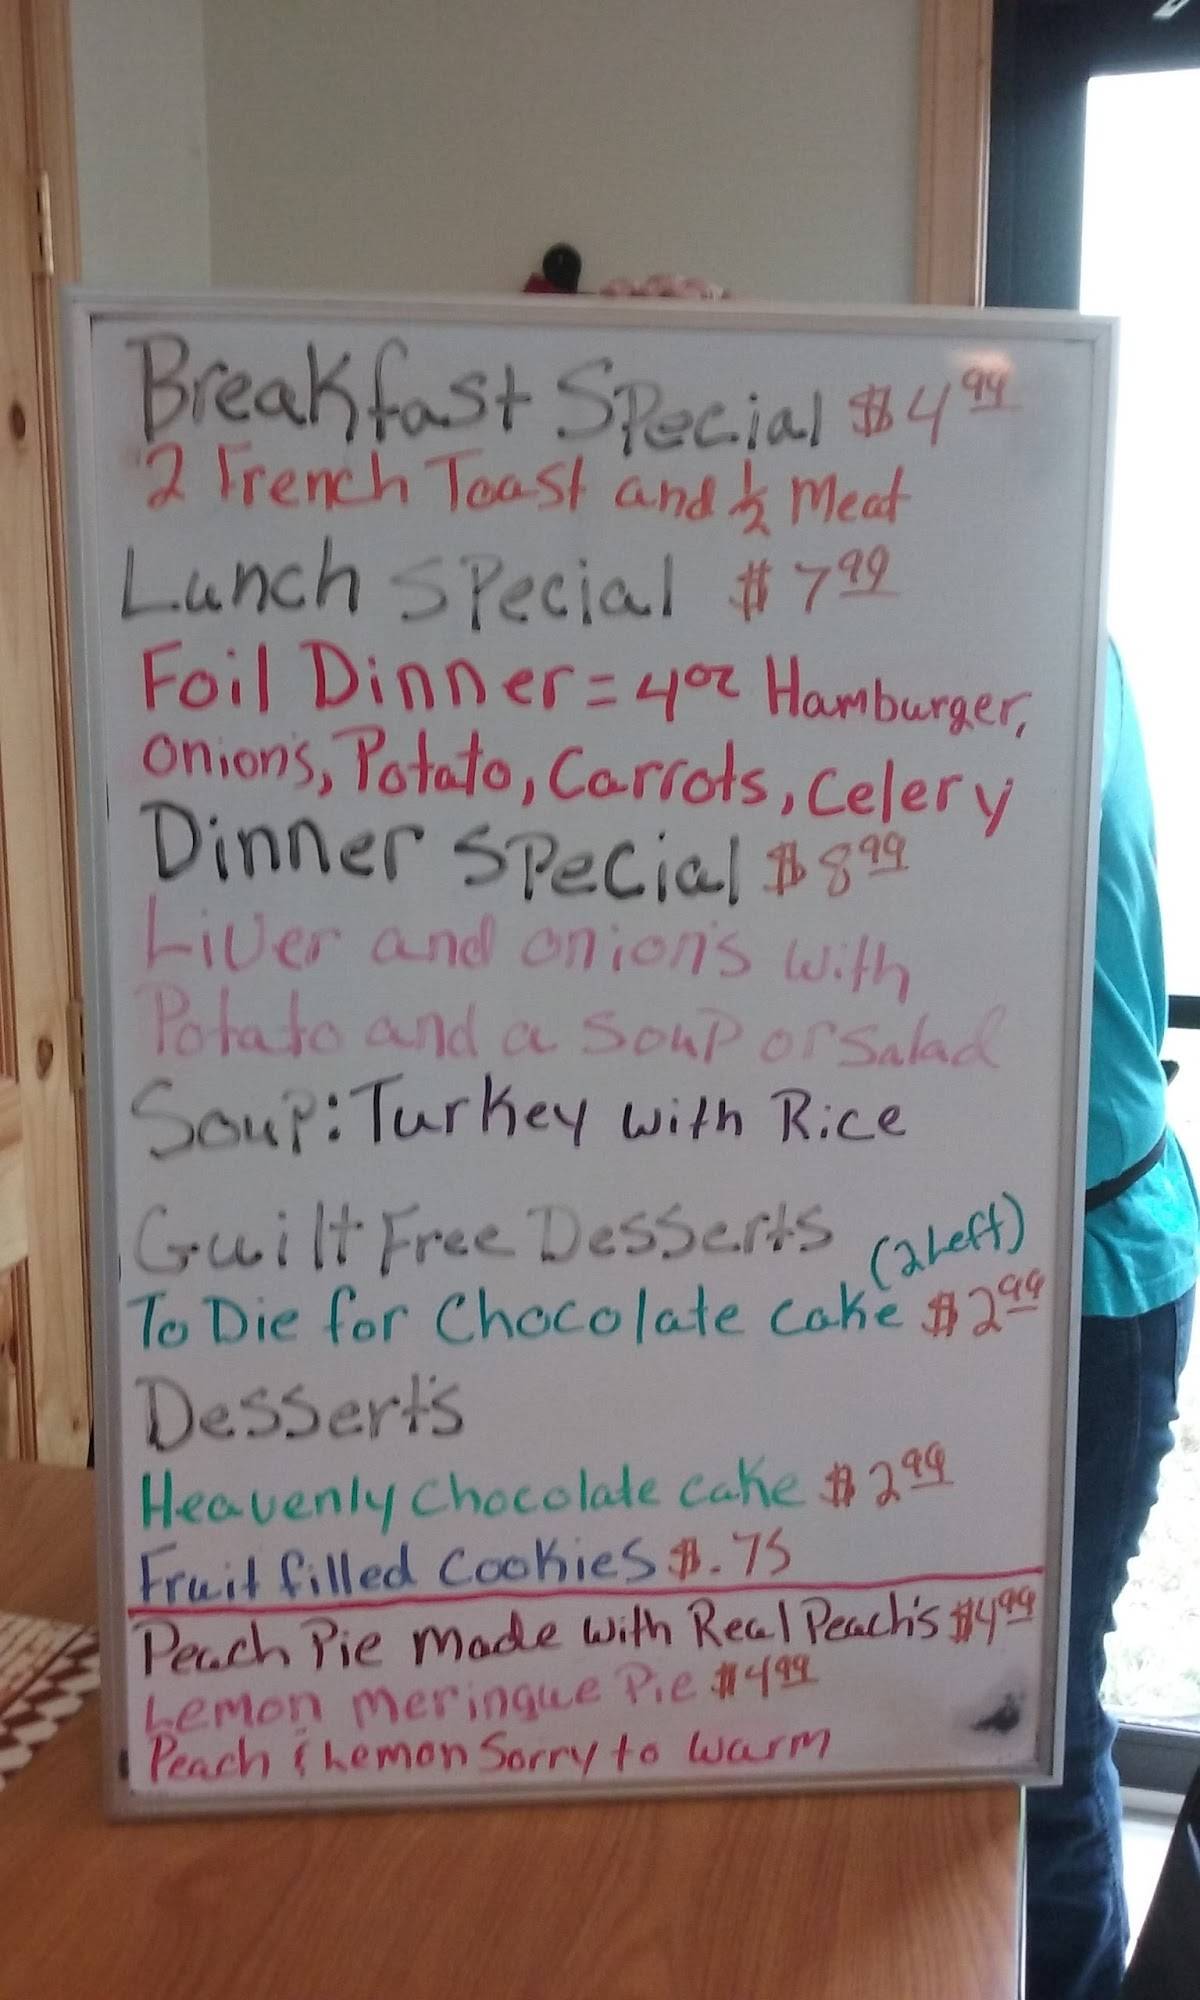 Breakfast Special $4.99
2 French Toast and ½ Meat
Lunch Special $7.99
Foil Dinner = 4oz Hamburger,
onion's, Potato, Carrots, Celery
Dinner Special $8.99
Liver and onion's with
Potato and a soup or salad
Soup: Turkey with Rice
Guilt Free Desserts (2 Left)
To Die for Chocolate cake $2.99
Dessert's
Heavenly Chocolate cake $2.99
Fruit filled cookies $.75
Peach Pie made with Real Peach's $4.99
Lemon meringue Pie $4.99
Peach & Lemon Sorry to warm